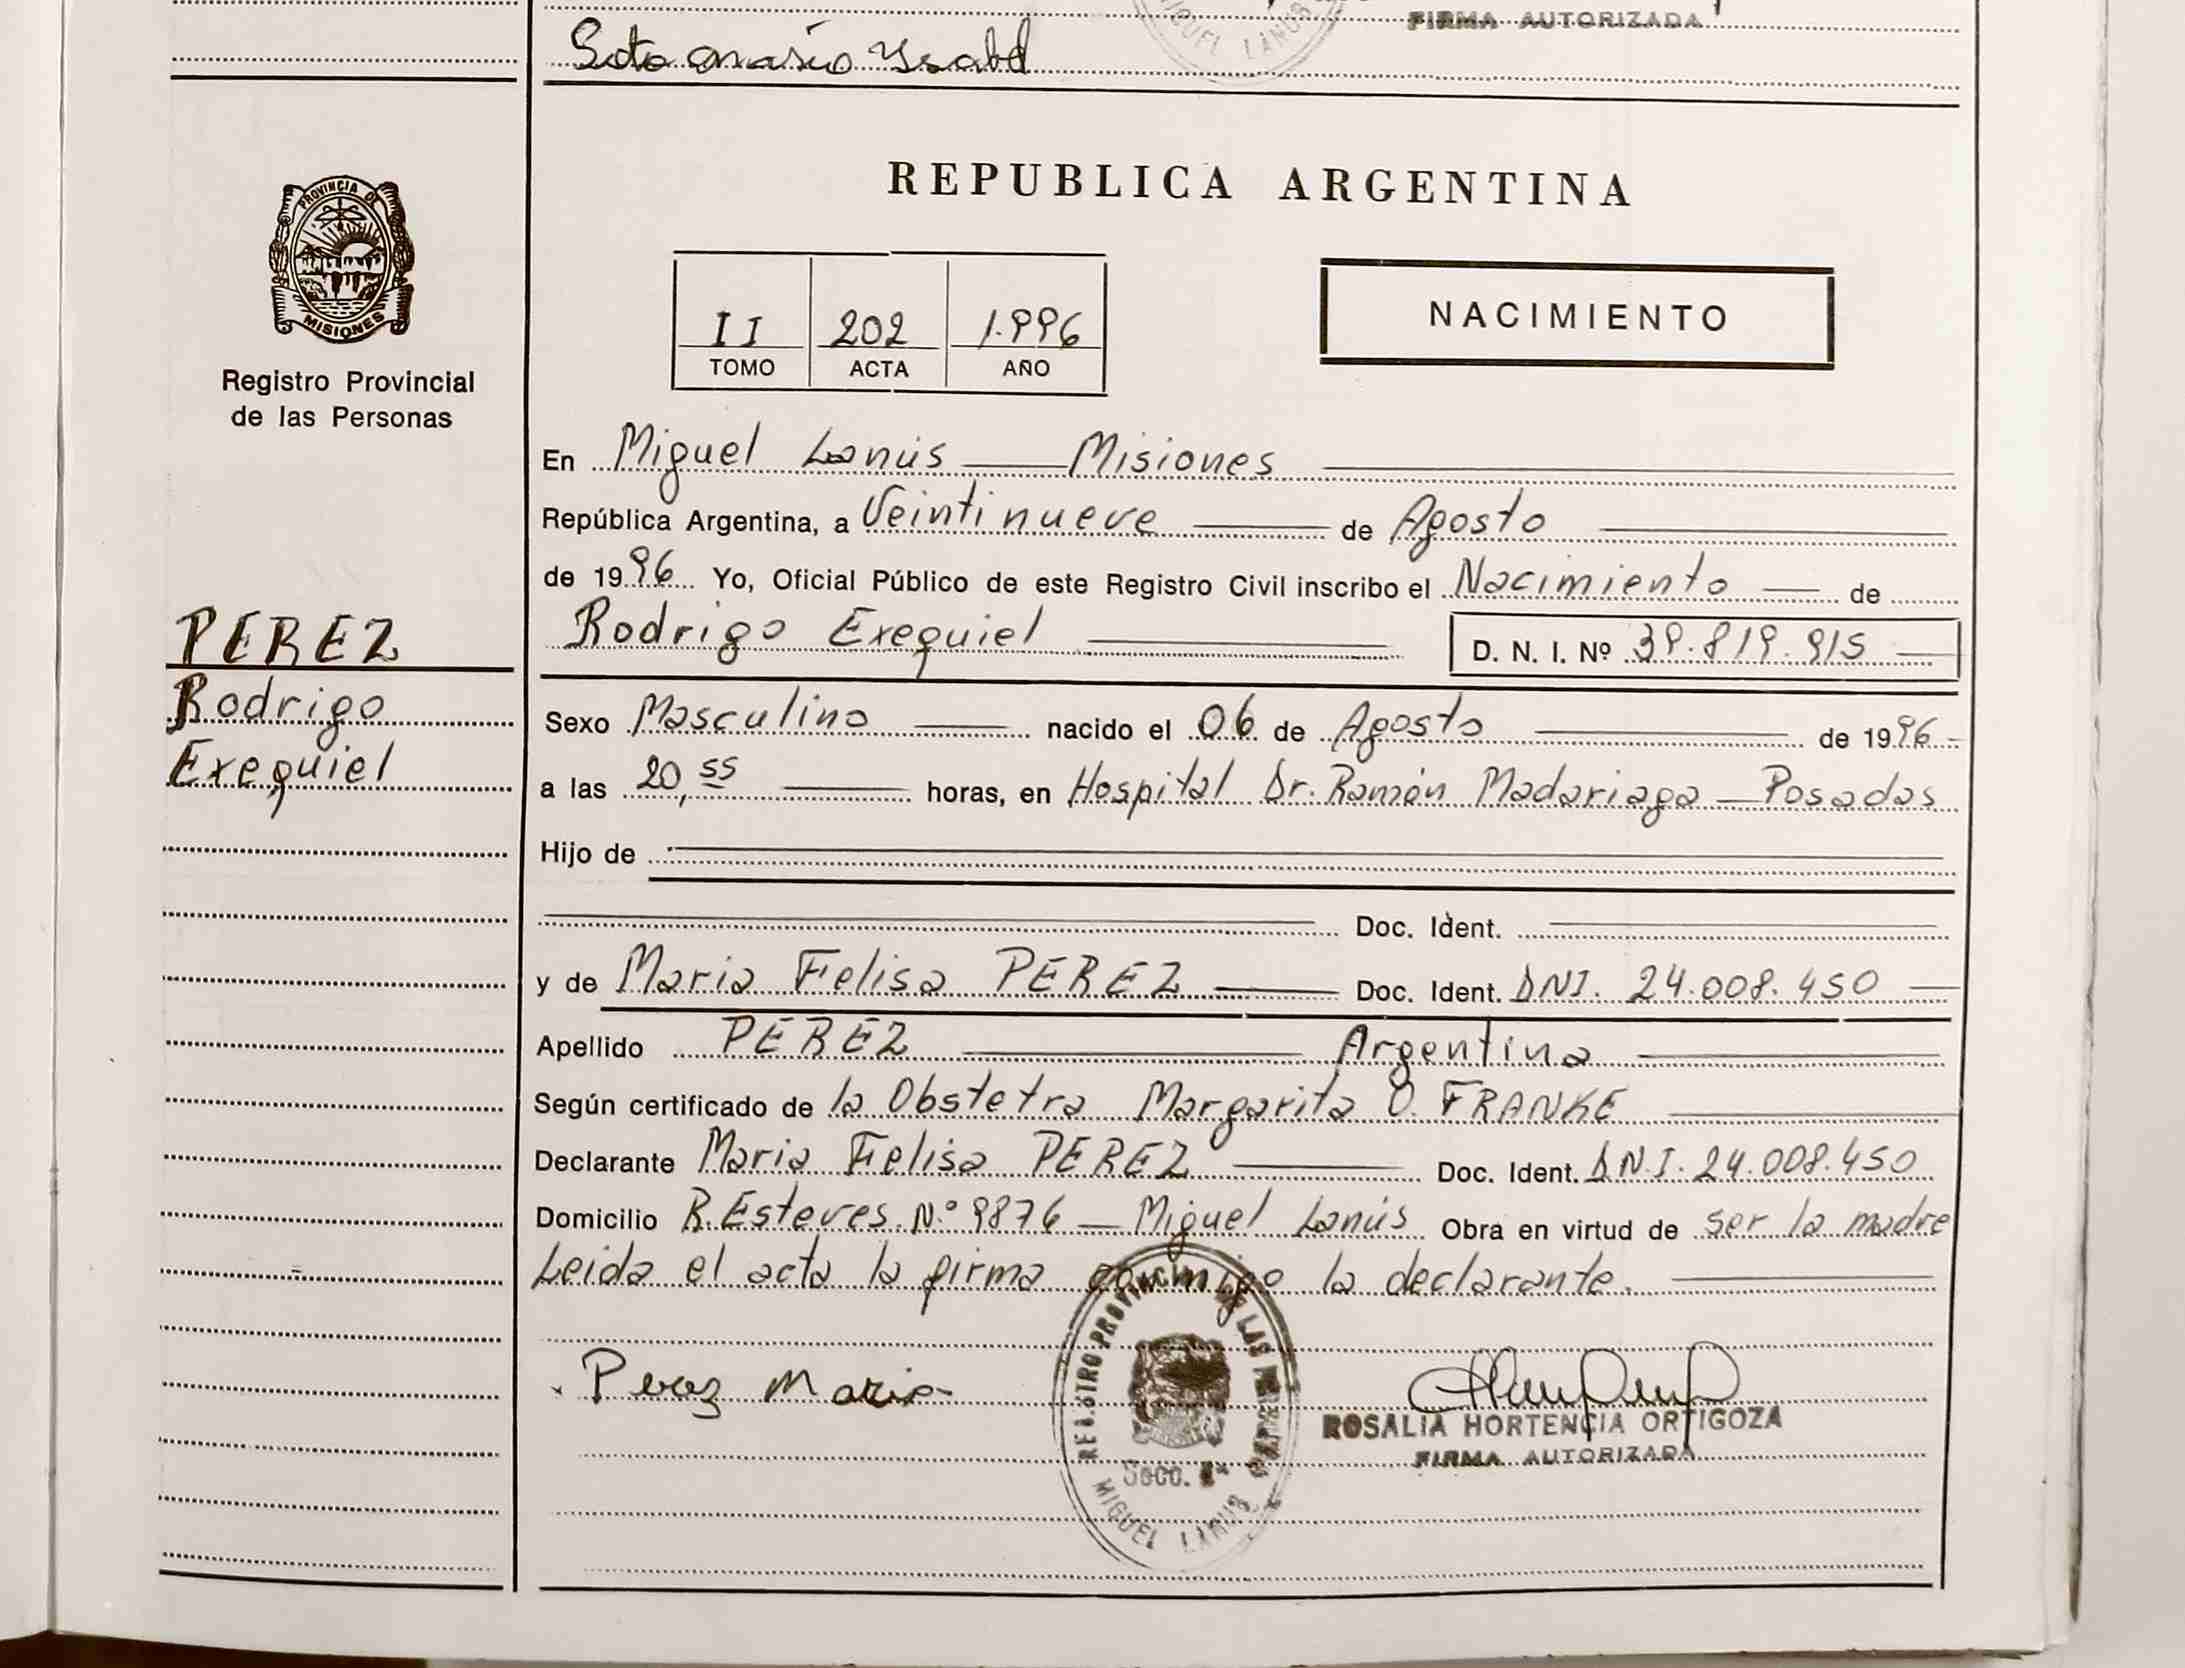 FIRMA AUTORIZADA
MIGUEL LANUS
Soto María Ysabel
PROVINCIA DE
MISIONES
Registro Provincial
de las Personas
PEREZ
Rodrigo
Exequiel
REPUBLICA ARGENTINA
II 202 1.996
TOMO ACTA AÑO
NACIMIENTO
En Miguel Lanús Misiones
República Argentina, a Veintinueve de Agosto
de 1996 Yo, Oficial Público de este Registro Civil inscribo el Nacimiento de
Rodrigo Exequiel D. N. I. Nº 39.819.915
Sexo Masculino nacido el 06 de Agosto de 1996
a las 20,55 horas, en Hospital Dr. Ramón Madariaga - Posadas
Hijo de
Doc. Ident.
y de Maria Felisa PEREZ Doc. Ident. DNI. 24.008.450
Apellido PEREZ Argentina
Según certificado de la Obstetra Margarita O. FRANKE
Declarante Maria Felisa PEREZ Doc. Ident. D.N.I. 24.008.450
Domicilio R. Esteves N.º 9876 - Miguel Lanús Obra en virtud de ser la madre
Leida el acta la firma conmigo la declarante.
Perez Maria
REGISTRO PROVINCIAL DE LAS PERSONAS
MIGUEL LANUS
ROSALIA HORTENCIA ORTIGOZA
FIRMA AUTORIZADA